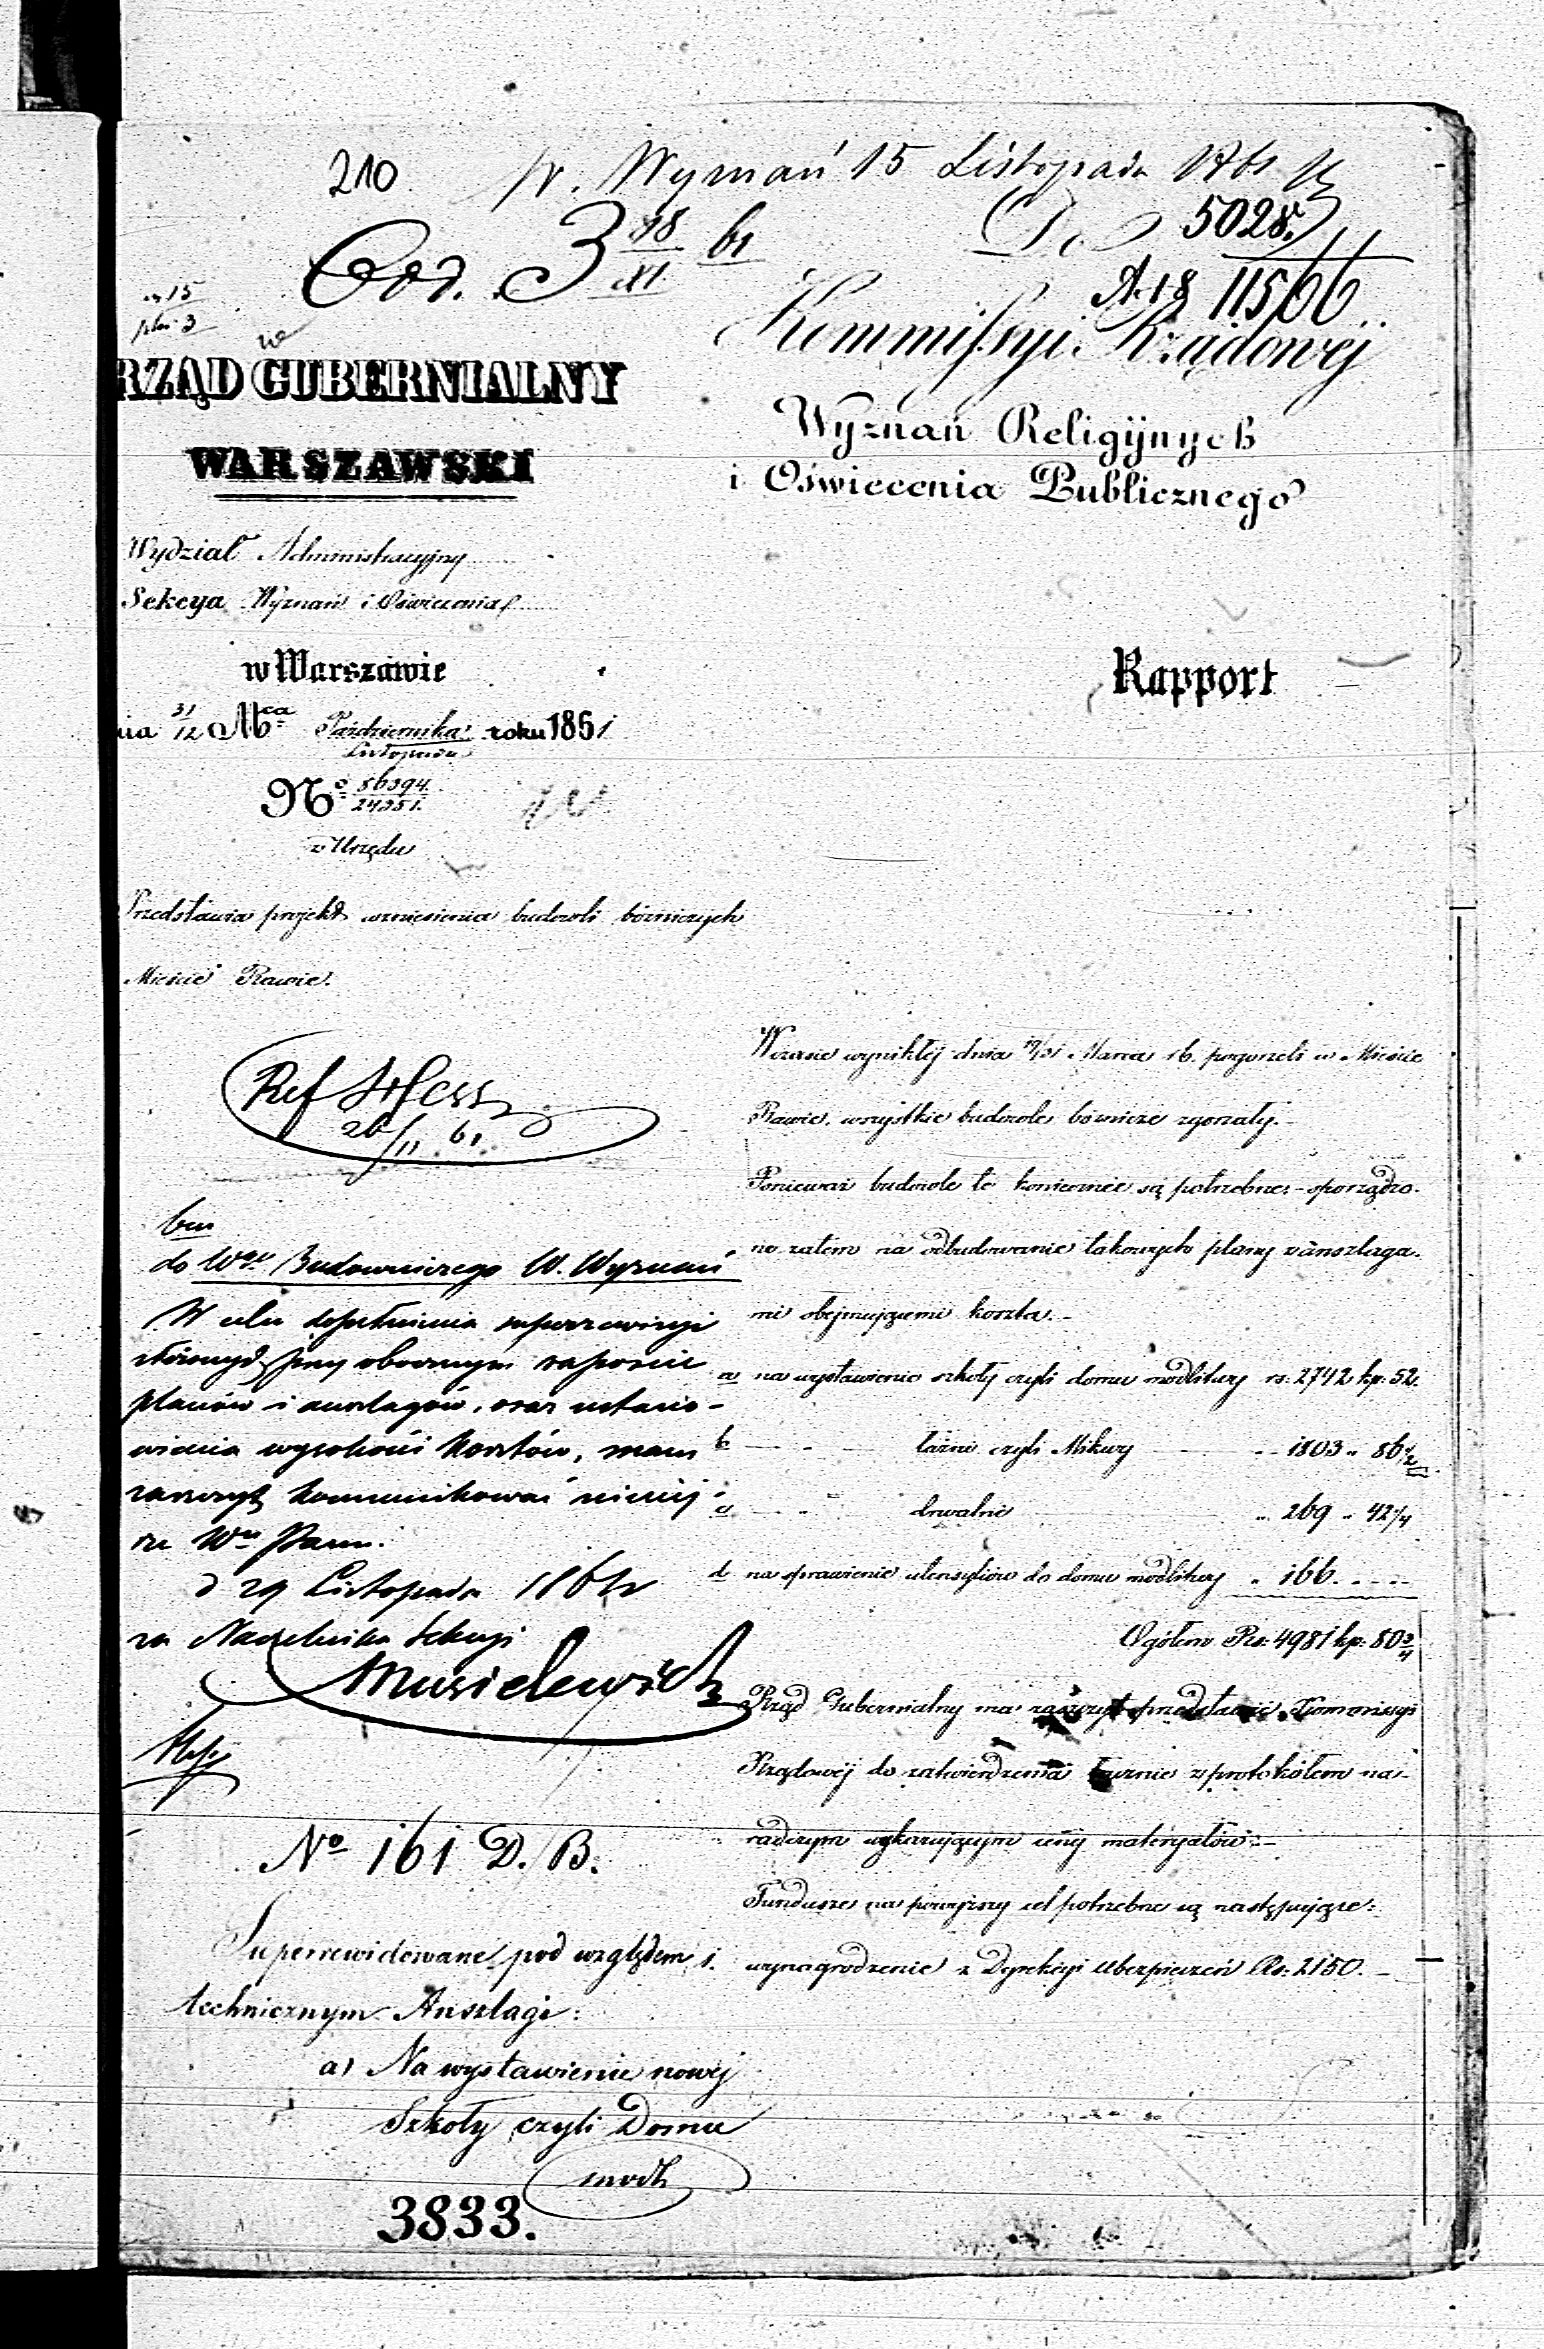 210
W. Wyznań 15 Listopada 1861
Do 5028.
God. 3 18/XI 61
A. 18 11566
Kommissyi Rządowéj
Wyznań Religijnych
i Oświecenia Publicznego
RZĄD GUBERNIALNY
WARSZAWSKI
Wydział Administracyjny
Sekcya Wyznań i Oświecenia
w Warszawie
nia 31/12 Mca Października/Listopada roku 1861
No 56394/24351.
z Urzędu
Rapport
Przedstawia projekt wzniesienia budowli bóżniczych
Mieście Rawie.
Ref Hess
20/11 61
do Wgo Budowniczego W. Wyznań
W celu dopełnienia superrewizyi
złożonych przy obecnym raporcie
planów i anszlagów, oraz ustano-
wienia wysokości kosztów, mam
zaszczyt komunikować niniej-
sze Wu Panu.
d 29 Listopada 1861 r
za Naczelnika Sekcyi
Musielewicz
No 161 D. B.
Superrewidowane pod względem
technicznym Anszlagi:
a) Na wystawienie nowej
Szkoły czyli Domu
modli
3833.
W czasie wynikłéj dnia 19/31 Marca r b. pogorzeli w Mieście
Rawie, wszystkie budowle bóżnicze zgorzały.-
Ponieważ budowle te koniecznie są potrzebne,- sporządzo-
no zatem na odbudowanie takowych plany z anszlaga-
mi obejmującemi koszta.-
a na wystawienie szkoły czyli domu modlitwy rs: 2742 kp: 52.
b - " - łaźni czyli Mikwy - " 1803 " 86 1/2
c - " - drwalni " 269 " 42 1/4
d na sprawienie utensyliów do domu modlitwy " 166. - -
Ogółem Rs: 4981 kp: 80 3/4
Rząd Gubernialny ma zaszczyt przedstawić Kommissyi
Rządowéj do zatwierdzenia łącznie z protokółem na-
radczym wykazującym ceny materyałów.-
Fundusze na powyższy cel potrzebne są następujące:
1. wynagrodzenie z Dyrekcyi Ubezpieczeń Rs: 2150.-